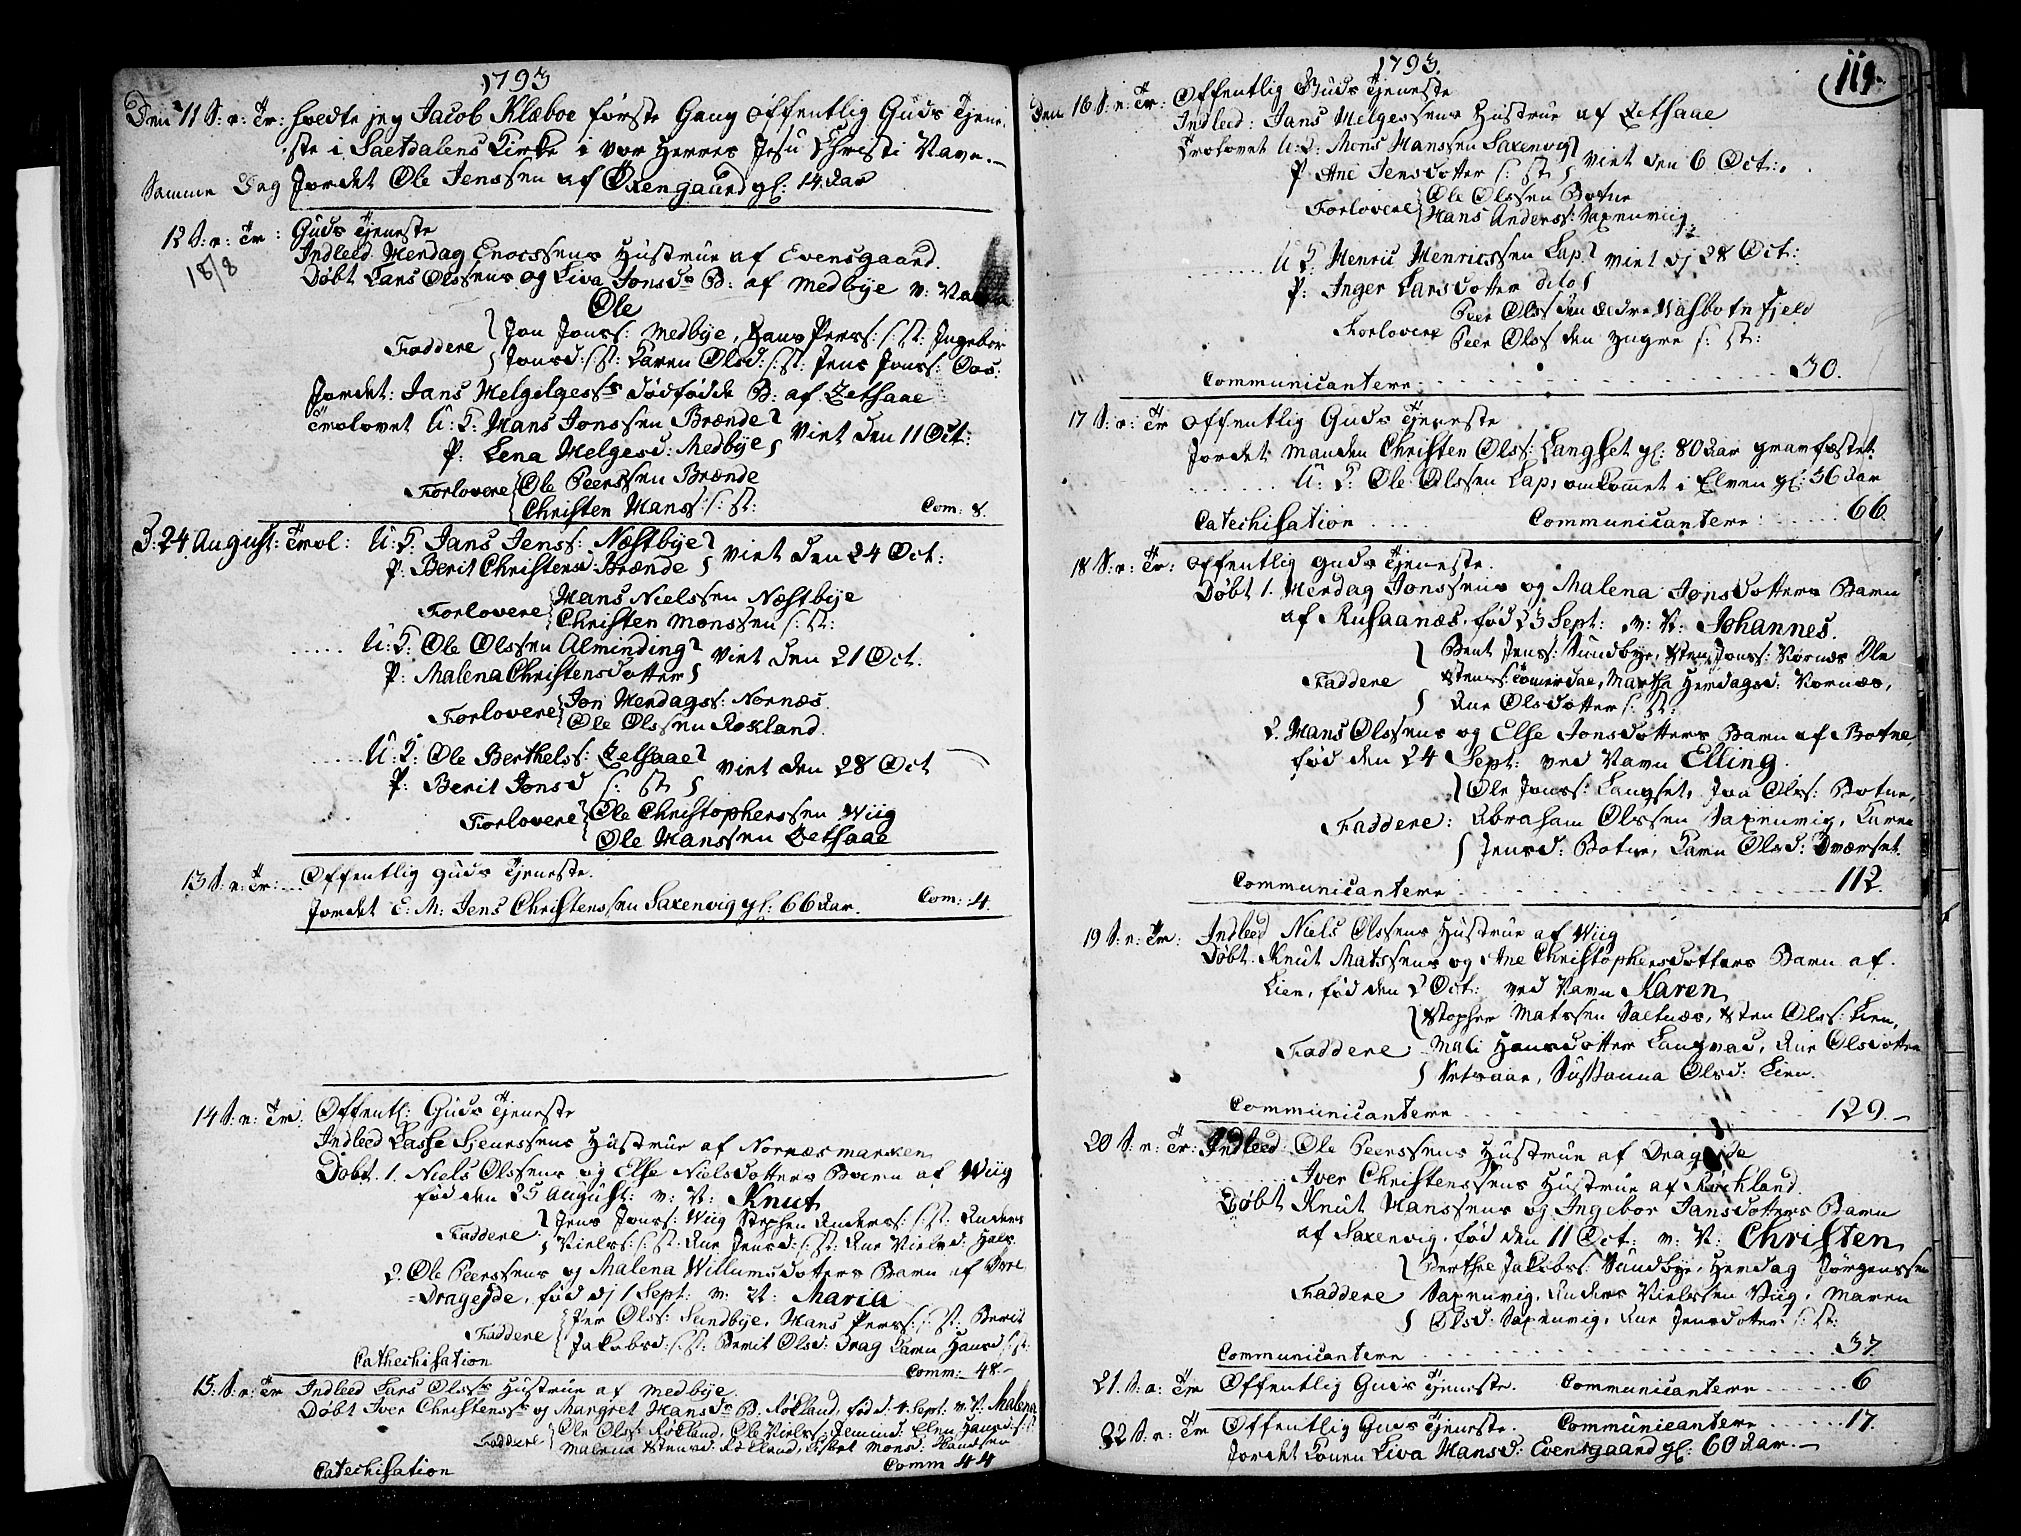 1793
Den 11 S: e: Tr: holdte jeg Jacob Klæboe første Gang offentlig Guds Tjene-
ste i Saltdalens Kirke i vor Herres Jesu Christi Navn.-
Samme Dag Jordet Ole Jenssen af Øxengaard gl: 14 Aar
12 S: e: Tr: Guds Tjeneste
18/8 Indleed Herdag Enocssens Hustrue af Evensgaard.
Døbt Lars Olssens og Liva Jonsdr B: af Medbye v: Navn
Ole
Jon Jonss: Medbye, Hans Perss: s: st: Ingebor
Faddere
Jonsd: s: st: Karen Olsd: s: st: Jens Jonss:
Jordet: Jans Helgesss dødfødde B: af Zetsaae
Trolovet U: K: Hans Jonssen Brænde
P: Lena Helgesd: Medbye viet den 11 Oct:
Forlovere Ole Peerssen Brænde
Christen Hanss: s: st: Com: 8.
D: 24 August: Trol: U: K: Jans Jenss: Næstbye
P: Berit Christensd: Brænde viet den 24 Oct:
Forlovere Hans Nielssen Næstbye
Christen Monssen s: st:
U: K: Ole Olssen Alminding
P: Malena Christensdotter viet den 21 Oct.
Forlovere Jon Herdagss: Nornæs
Ole Olssen Rokland.
U: K: Ole Berthelss: Zetsaae
P: Berit Jonsd s: st viet den 28 Oct
Forlovere Ole Christophersen Wiig
Ole Hanssen Zetsaae
13 S: e: Tr: Offentlig Guds Tjeneste.
Jordet E: M: Jens Christenssen Saxenvig gl: 66 Aar. Com: 4.
14 S: e: Tr: Offentl: Guds Tjeneste
Indleed Lasse Hs Hustrue af Nornæsmarken
Døbt 1. Niels Olssens og Else Nielsdotters Barn af Wiig
fød den 25 August: v: N: Knut
Faddere Jens Jonss: Wiig Stephen Anderss: s: st: Anders
Nielss: s: st: Ane Jensd: s: st: Ane Nielsd: Hals
2. Ole Peerssens og Malena Willumsdotters Barn af Øvre
Dragejde, fød dj 1 Sept: v: N: Maria
Faddere Per Olss: Sundbye, Hans Perss: s: st: Berit
Jakobsd: s: st: Berit Olsd: Drag Karn Hansd s: st:
Cathechisation Comm: 48-
15. S: e: Tr Indleed Lars Olsss Hustrue af Medbye.
Døbt Iver Christensss og Margret Hansdr B. Røkland, fød d. 4 Sept: v: N: Malena
Faddere Ole Olss: Røkland, Ole Nielss: s: st: Elen Hansd: s: st:
Malena Stensd: Røkland, Monsd:
Catechisation Comm 44
1793.
119.
Den 16 S: e: Tr: Offentlig Guds Tjeneste
Indleed: Jans Helgessens Hustrue af Zetsaae
Trolovet U: K: Mons Hanssen Saxenvig
P: Ane Jensdotter s: st viet den 6 Oct:.
Forlovere Ole Olssen Botne
Hans Anderss: Saxenviig
U K: Henric Henricssen Lap
P: Inger Larsdotter dito viet dj 28 Oct:
Peer Olss den ældre Wasbotnfjeld
Forlovere Peer Olss den yngre s: st:
Communicantere 30.
17 S: e: Tr Offentlig Guds Tjeneste
Jordet Manden Christen Olss: Langset gl: 80 Aar gramfæstet
U: K: Ole Olssen Lap, omkommet i Elven gl: 36 Aar
Catechisation Communicantere: 66.
18 S: e: Tr: Offentlig Guds Tjeneste.
Døbt 1. Herdag Jonssens og Malena Jonsdotters Barn
af Rusaanæs, fød 23 Sept: v: N: Johannes.
Bent Jenss: Sundbye, Sten Jonss: Nornæs Ole
Faddere Stenss: , Martha Herdagsd: Nornæs,
Ane Olsdotter s: st:
2. Hans Olssens og Else Jonsdotters Barn af Botne,
fød den 24 Sept: ved Navn Elling.
Ole Jonss: Langset, Jon Olss: Botne,
Faddere: Abraham Olssen Saxenvig, Karen
Jensd: Botne, Karn Olsd: Dværset.
Communicantere 112.
19 S: e: Tr: Indleed Niels Olssens Hustrue af Wiig
Døbt. Knut Matssens og Ane Christophersdotters Barn af
Lien, fød den 2 Oct: ved Navn Karen
Stopher Matssen Saltnæs, Sten Olss: Lien,
Faddere Mali Hansdotter Langvad, Ane Olsdotter
Setsaae, Sussanna Olsd: Lien.
Communicantere 129.-
20 S: e: Tr: Indleed: Ole Peerssens Hustrue af Dragejde
Iver Christenssens Hustrue af Røckland.
Døbt Knut Hanssens og Ingebor Jansdotters Barn
af Saxenvig, fød den 11 Oct: v: N: Christen
Berthel Jakobss: Sundbye, Herdag Jörgenssen
Faddere Saxenvig, Anders Nielssen Wiig, Maren
Olsd: Saxenvig, Ane Jensdotter s: st:
Communicantere 37
21. S: e: Tr Offentlig Guds Tjeneste. Communicantere 6
22 S: e: Tr Offentlig Guds Tjeneste. Communicantere 17.
Jordet Konen Liva Hansd: Evensgaard gl: 60 Aar.-